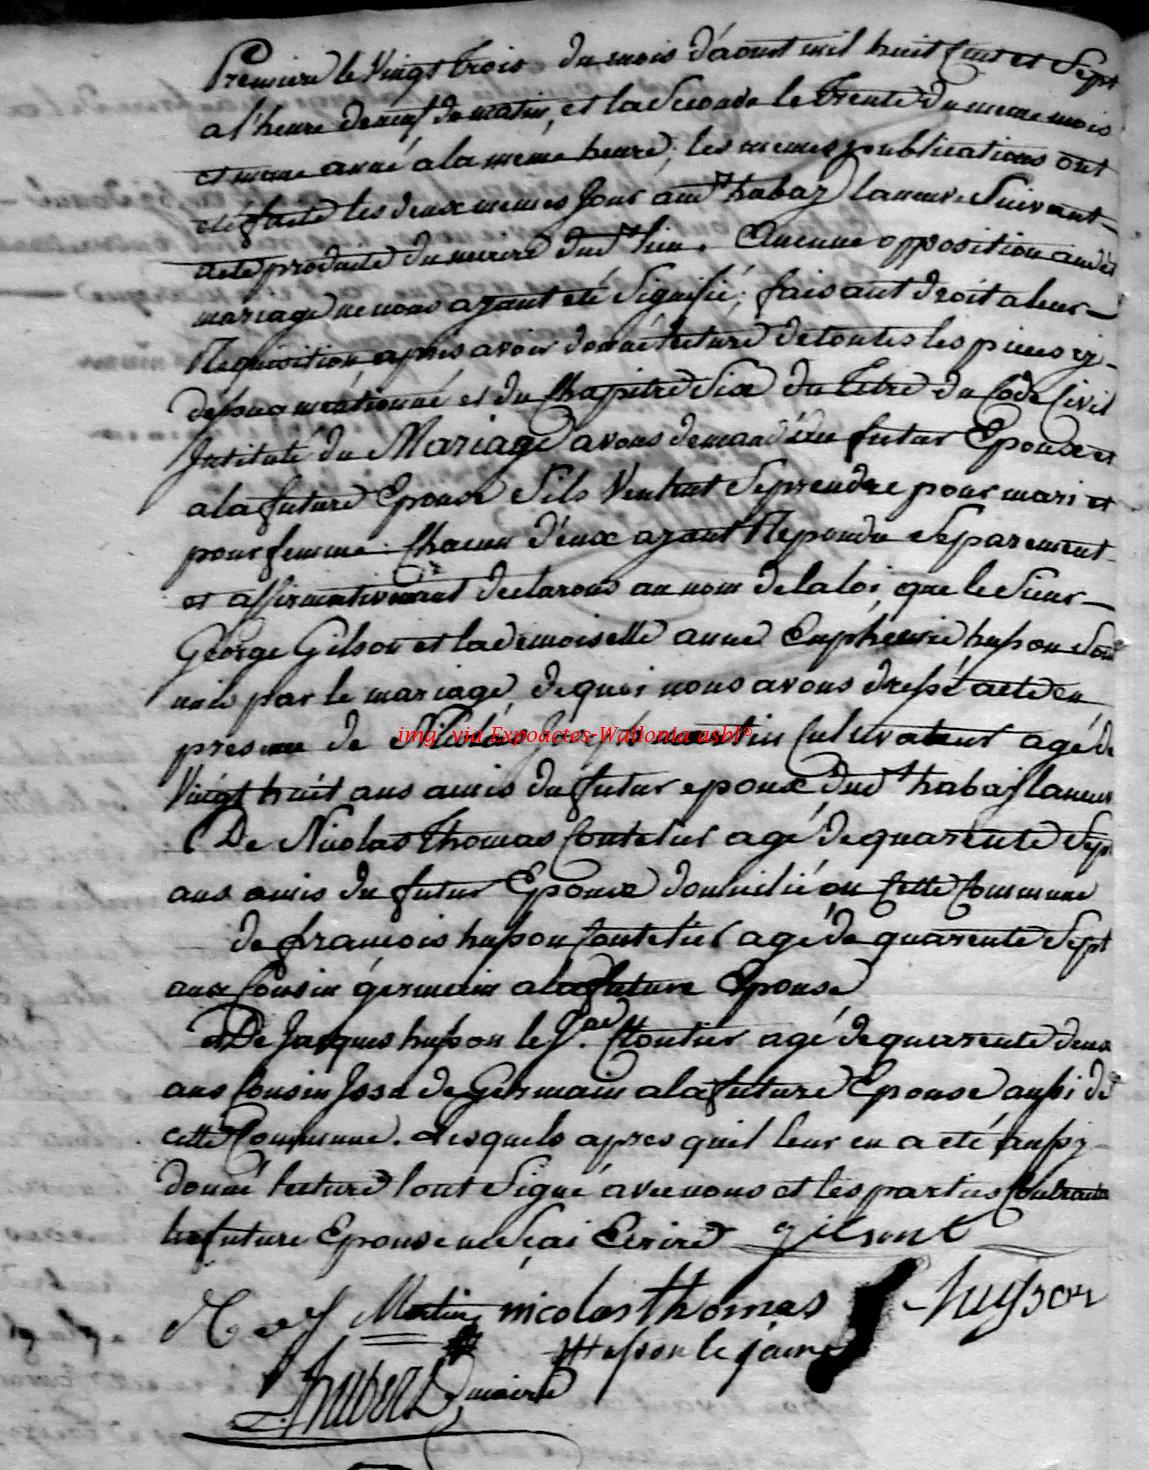 Premiere le Vingt trois du mois d'aoust mil huit Cent et Sept
a l'heure de neuf du matin, et la Seconde le Trente du meme mois
et meme anné a la meme heure; les memes publications ont
eté faite les deux memes Jour aud.t habaz laneuve Suivant
acte produite du mairie dud.t lieu. Aucune opposition audit
mariage ne nous ayant eté Signifié; faisant droit a leur
Requisition, apres avoir donné lecture de toutes les pieces cy-
dessus mentionné et du Chapitre Six du Titre du Code Civil
Intitulé du Mariage avons demandé au futur Epoux et
a la future Epouse S'ils Veulent Se prendre pour mari et
pour femme: Chacun d'eux ayant Repondu Separement
et affirmativement declarons au nom de la loi, que le Sieur
George Gilson et la demoiselle anne Euphemie husson Sont
unis par le mariage, de quoi nous avons dressé acte en
presence de martin Cultivateur agé de
img. via Expoactes-Wallonia asbl®
Vingt huit ans amis du futur epoux dud.t habaz laneuve
De Nicolas Thomas Coutelier agé de quarente Sept
ans amis du futur Epoux domicilié en Cette Commune
de françois husson Coutelier agé de quarente Sept
ans Cousin germain a la future Epouse
et De Jacques husson le Cloutier agé de quarente deux
ans Cousin Issu de Germain a la future Epouse aussi de
cette Commune. Lesquels apres qu'il leur en a eté aussy
donné lecture l'ont Signé avec nous et les parties Contractantes
la future Epouse ne Sçai Ecrire gilsont
Martin nicolas thomas husson
Husson le jaune
Hubert maire